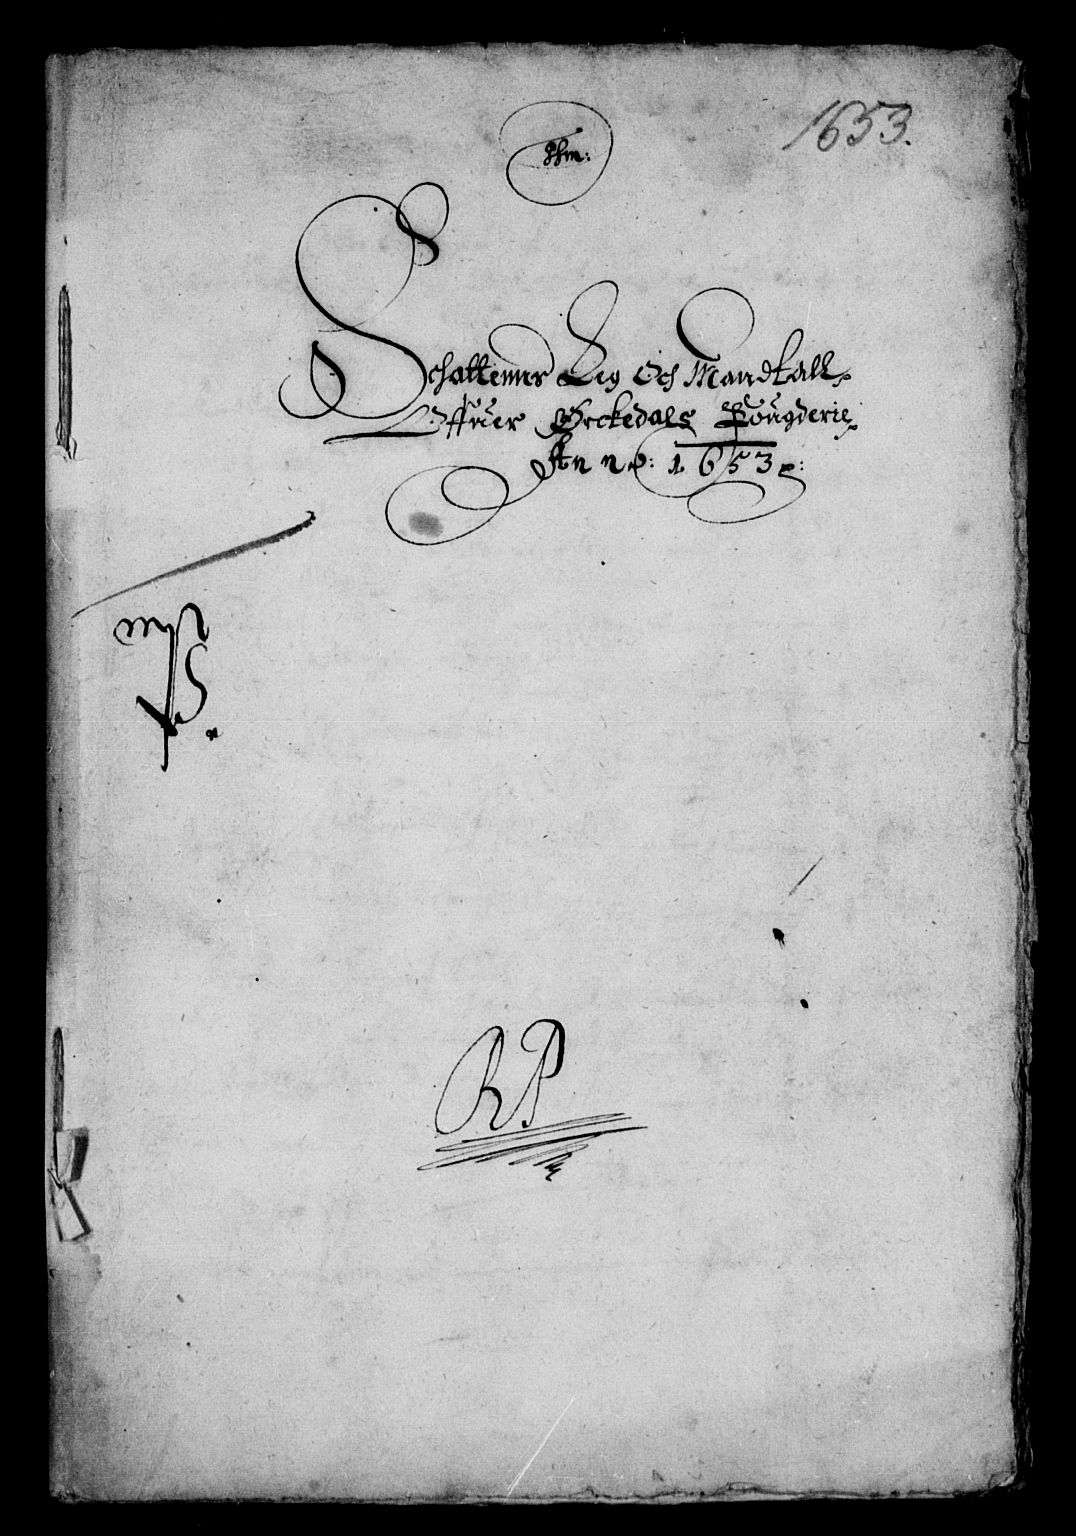 1653.
Schattenis Leg Och Mandtall
Offuer Örckedals Fougderie
Anno: 1653
RP